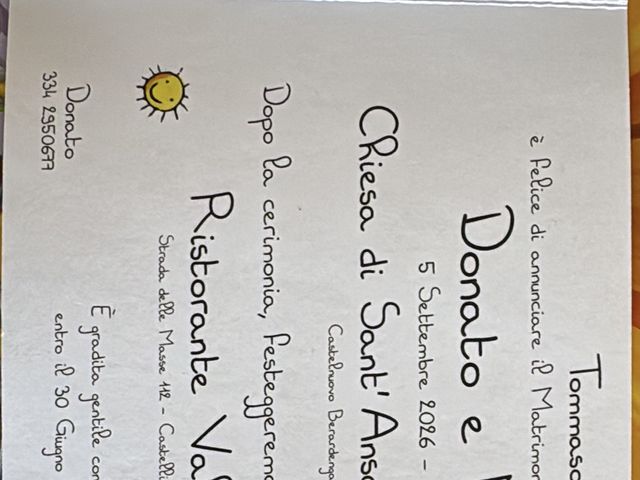 Tommaso
è felice di annunciare il Matrimon
Donato e
5 Settembre 2026 -
Chiesa di Sant'Ans
Castelnuovo Berardenga
Dopo la cerimonia, festeggerem
Ristorante Va
Strada delle Masse 112 - Castelli
È gradita gentile con
entro il 30 Giugno
Donato
334 2950677